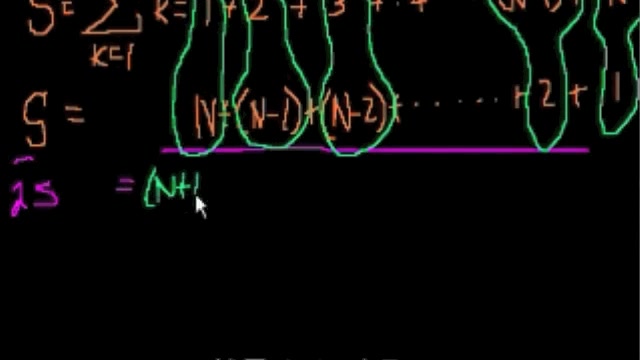 S = ∑ k = 1 + 2 + 3 + . . .
k=1
S = N + (N-1) + (N-2) + . . . . . . + 2 + 1
2S = (N+1